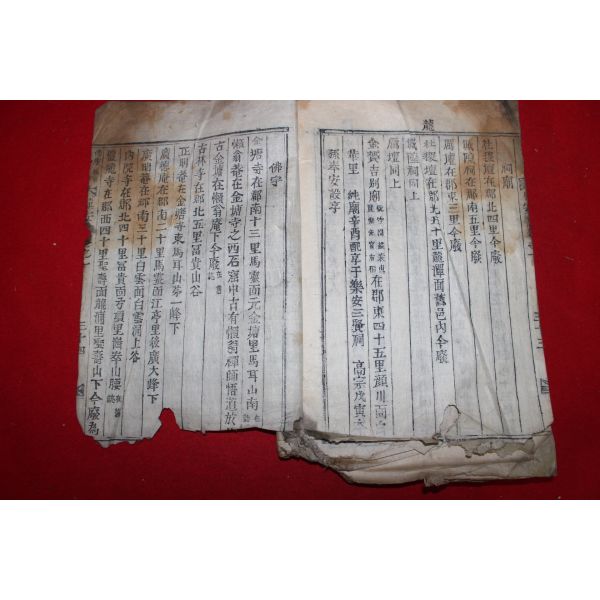 祠廟
社稷壇在郡北四里今廢
城隍祠在郡南五里今廢
厲壇在郡東三里今廢
龍
社稷壇在郡北五十里龍潭面舊邑內今廢
城隍祠同上
厲壇同上
金賀吉別廟
在郡東四十五里顔川面
華里 純廟辛酉配享于樂安三賢祠 高宗戊寅
孫奉安設享
佛宇
金塘寺在郡南十三里馬靈面元金塘里馬耳山南
懶翁菴在金塘寺之西石窟中古有懶翁禪師悟道放
古金塘在懶翁庵下今廢
古林寺在郡北五里富貴山谷
正明菴在金塘寺東馬耳山第一峰下
廣德菴在郡南二十里馬靈面江亭里後廣大峰下
廣明菴在郡南三十里白雲面白雲洞上谷
內院寺在郡北四十里富貴面
寺在郡西四十里聖壽面龍浦里聖壽山下今廢為
三十四